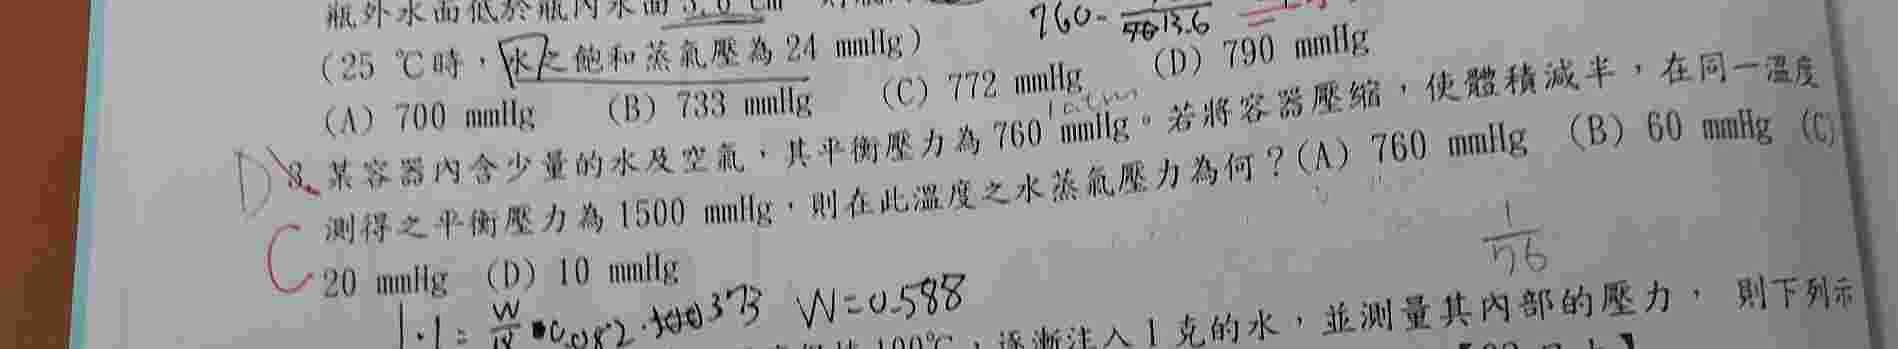 瓶外水面低於瓶內水面 3.6 cm
760-
13.6
(25 ℃時，水之飽和蒸氣壓為24 mmHg)
(A) 700 mmHg (B) 733 mmHg (C) 772 mmHg (D) 790 mmHg
1atm
D 3. 某容器內含少量的水及空氣，其平衡壓力為 760 mmHg。若將容器壓縮，使體積減半，在同一溫度
C 測得之平衡壓力為 1500 mmHg，則在此溫度之水蒸氣壓力為何？(A) 760 mmHg (B) 60 mmHg (C)
20 mmHg (D) 10 mmHg
1/76
1.1 = W/18 · 0.082 · 373 W=0.588
100℃，逐漸注入 1 克的水，並測量其內部的壓力， 則下列示